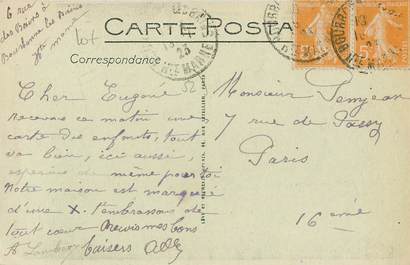 6 rue
des Bains à
Bourbonne les Bains
Hte marne
lot
CARTE POSTALE
Correspondance
52
Cher Eugène
recevais ce matin une
carte des enfants, tout
va bien, ici aussi,
espérons de même pour toi
Notre maison est marquée
d'une X. t'embrassons de
tout cœur recevois mes bons
baisers
Monsieur Penjean
7 rue de Passy
Paris
16 ème